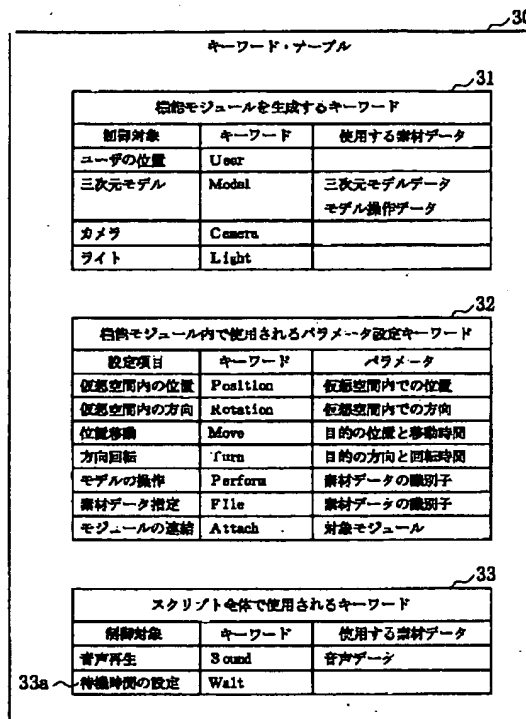 30
キーワード・テーブル
31
機能モジュールを生成するキーワード
制御対象 キーワード 使用する素材データ
ユーザの位置 User
三次元モデル Model 三次元モデルデータ
モデル操作データ
カメラ Camera
ライト Light
32
機能モジュール内で使用されるパラメータ設定キーワード
設定項目 キーワード パラメータ
仮想空間内の位置 Position 仮想空間内での位置
仮想空間内の方向 Rotation 仮想空間内での方向
位置移動 Move 目的の位置と移動時間
方向回転 Turn 目的の方向と回転時間
モデルの操作 Perform 素材データの識別子
素材データ指定 File 素材データの識別子
モジュールの連結 Attach 対象モジュール
33
スクリプト全体で使用されるキーワード
制御対象 キーワード 使用する素材データ
音声再生 Sound 音声データ
33a 待機時間の設定 Wait